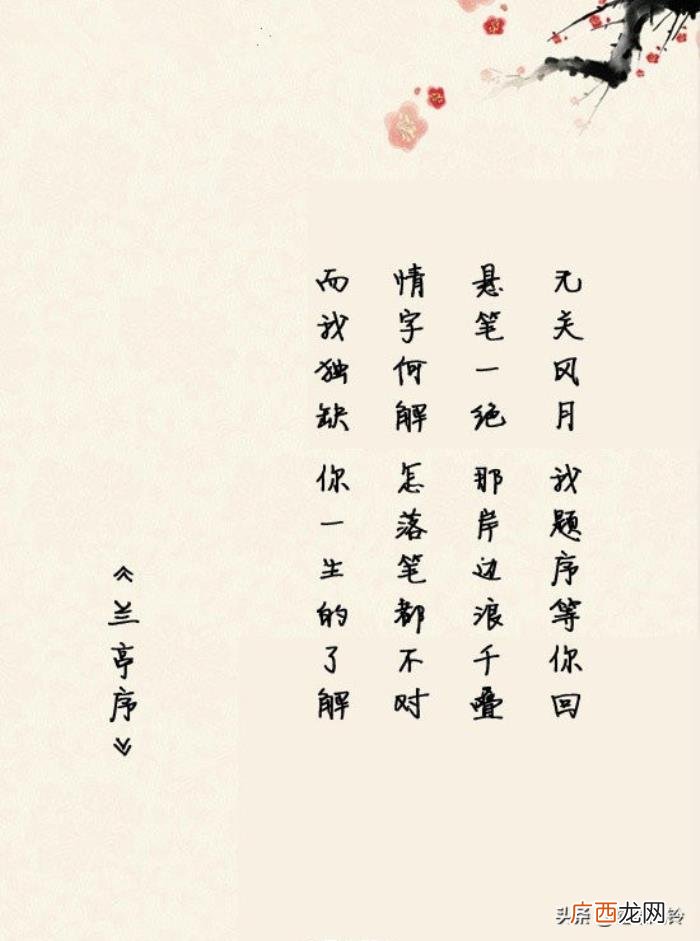 无关风月 我题序等你回
悬笔一绝 那岸边浪千叠
情字何解 怎落笔都不对
而我独缺 你一生的了解
《兰亭序》
广西龙网